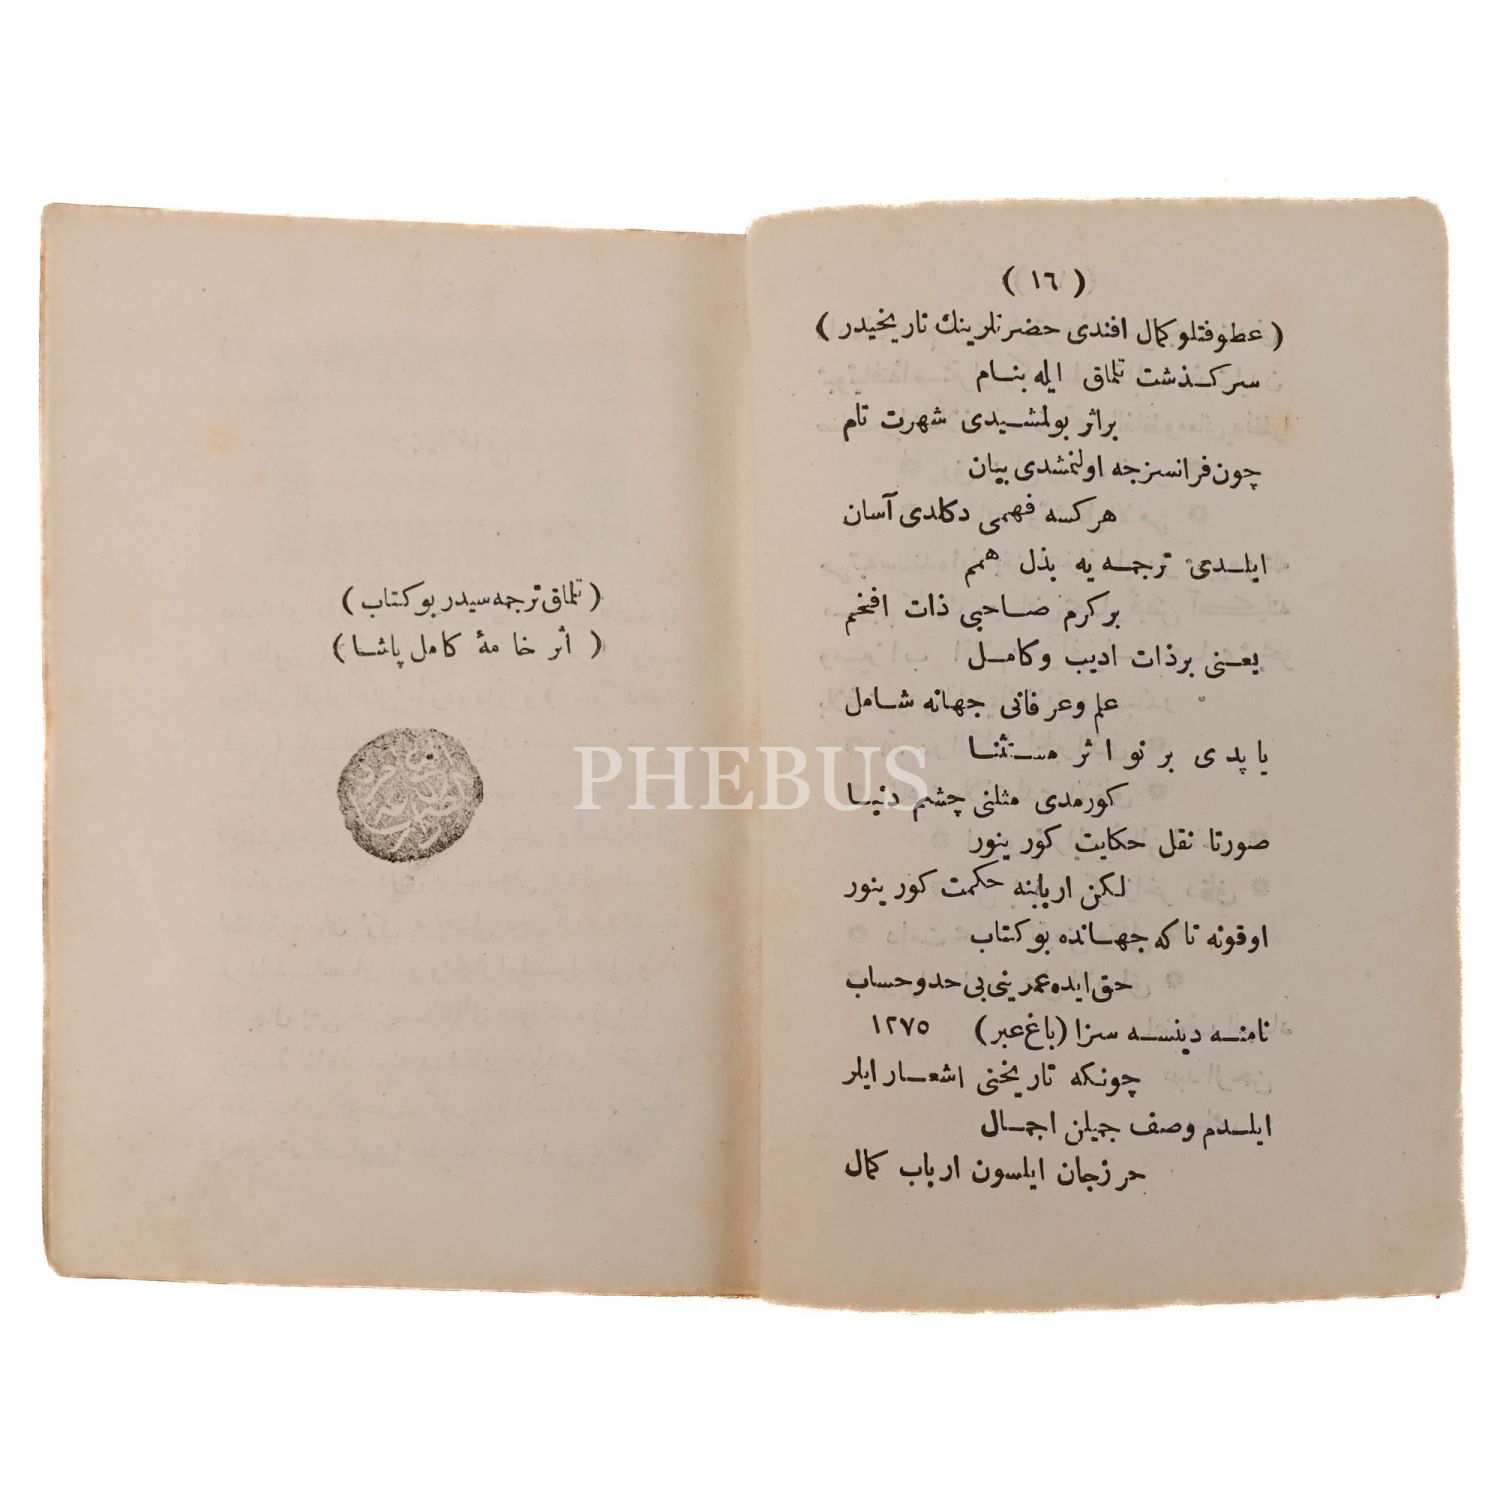 ( ١٦ )
( عطوفتلو کمال افندی حضرتلرینك تاریخیدر )
سرکذشت تلماق ایله بنام
براثر بولمشیدی شهرت تام
چون فرانسزجه اولنمشدی بیان
هرکسه فهمی دکلدی آسان
ایلدی ترجمه یه بذل همم
برکرم صاحبی ذات افخم
یعنی برذات ادیب وکامل
علم وعرفانی جهانه شامل
یاپدی برنو اثر مستثنا
کورمدی مثلنی چشم دنیا
صورتا نقل حکایت کورینور
لکن اربابنه حکمت کورینور
اوقونه تاکه جهانده بوکتاب
حق ایده عمرینی بی حدوحساب
نامنه دینسه سزا (باغ عبر) ١٢٧٥
چونکه تاریخنی اشعار ایلر
ایلدم وصف جمیلن اجمال
حرزجان ایلسون ارباب کمال
( تلماق ترجمه سیدر بوکتاب )
( اثر خامهٔ کامل پاشا )
PHEBUS